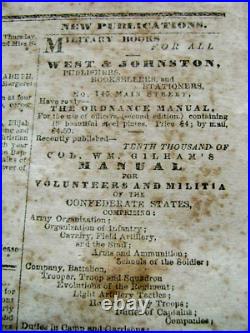 NEW PUBLICATIONS.
MILITARY BOOKS
FOR ALL
WEST & JOHNSTON,
PUBLISHERS,
BOOKSELLERS, and
STATIONERS,
No. 145 MAIN STREET,
Have ready—
THE ORDNANCE MANUAL,
For the use of officers, (second edition,) containing
beautiful steel plates. Price $4; by mail,
$4.50.
Recently published—
TENTH THOUSAND OF
COL. WM. GILHAM'S
MANUAL
FOR
VOLUNTEERS AND MILITIA
OF THE
CONFEDERATE STATES,
COMPRISING:
Army Organization;
Organization of Infantry;
Cavalry, Field Artillery,
and the Staff;
Arms and Ammunition;
Schools of the Soldier;
Company, Battalion,
Trooper, Troop and Squadron
Evolutions of the Regiment;
Light Artillery Tactics;
Duties of
Companies;
Duties in Camp and Garrisons;
Thursday,
Margaret